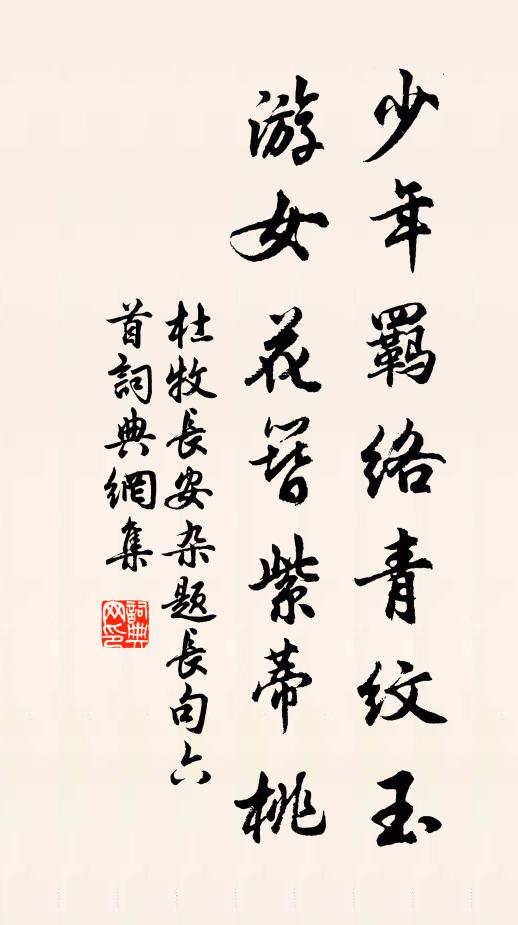 少年羈絡青紋玉
游女花簪紫蒂桃
杜牧長安杂題長句六
首詞典網集
詞典网印